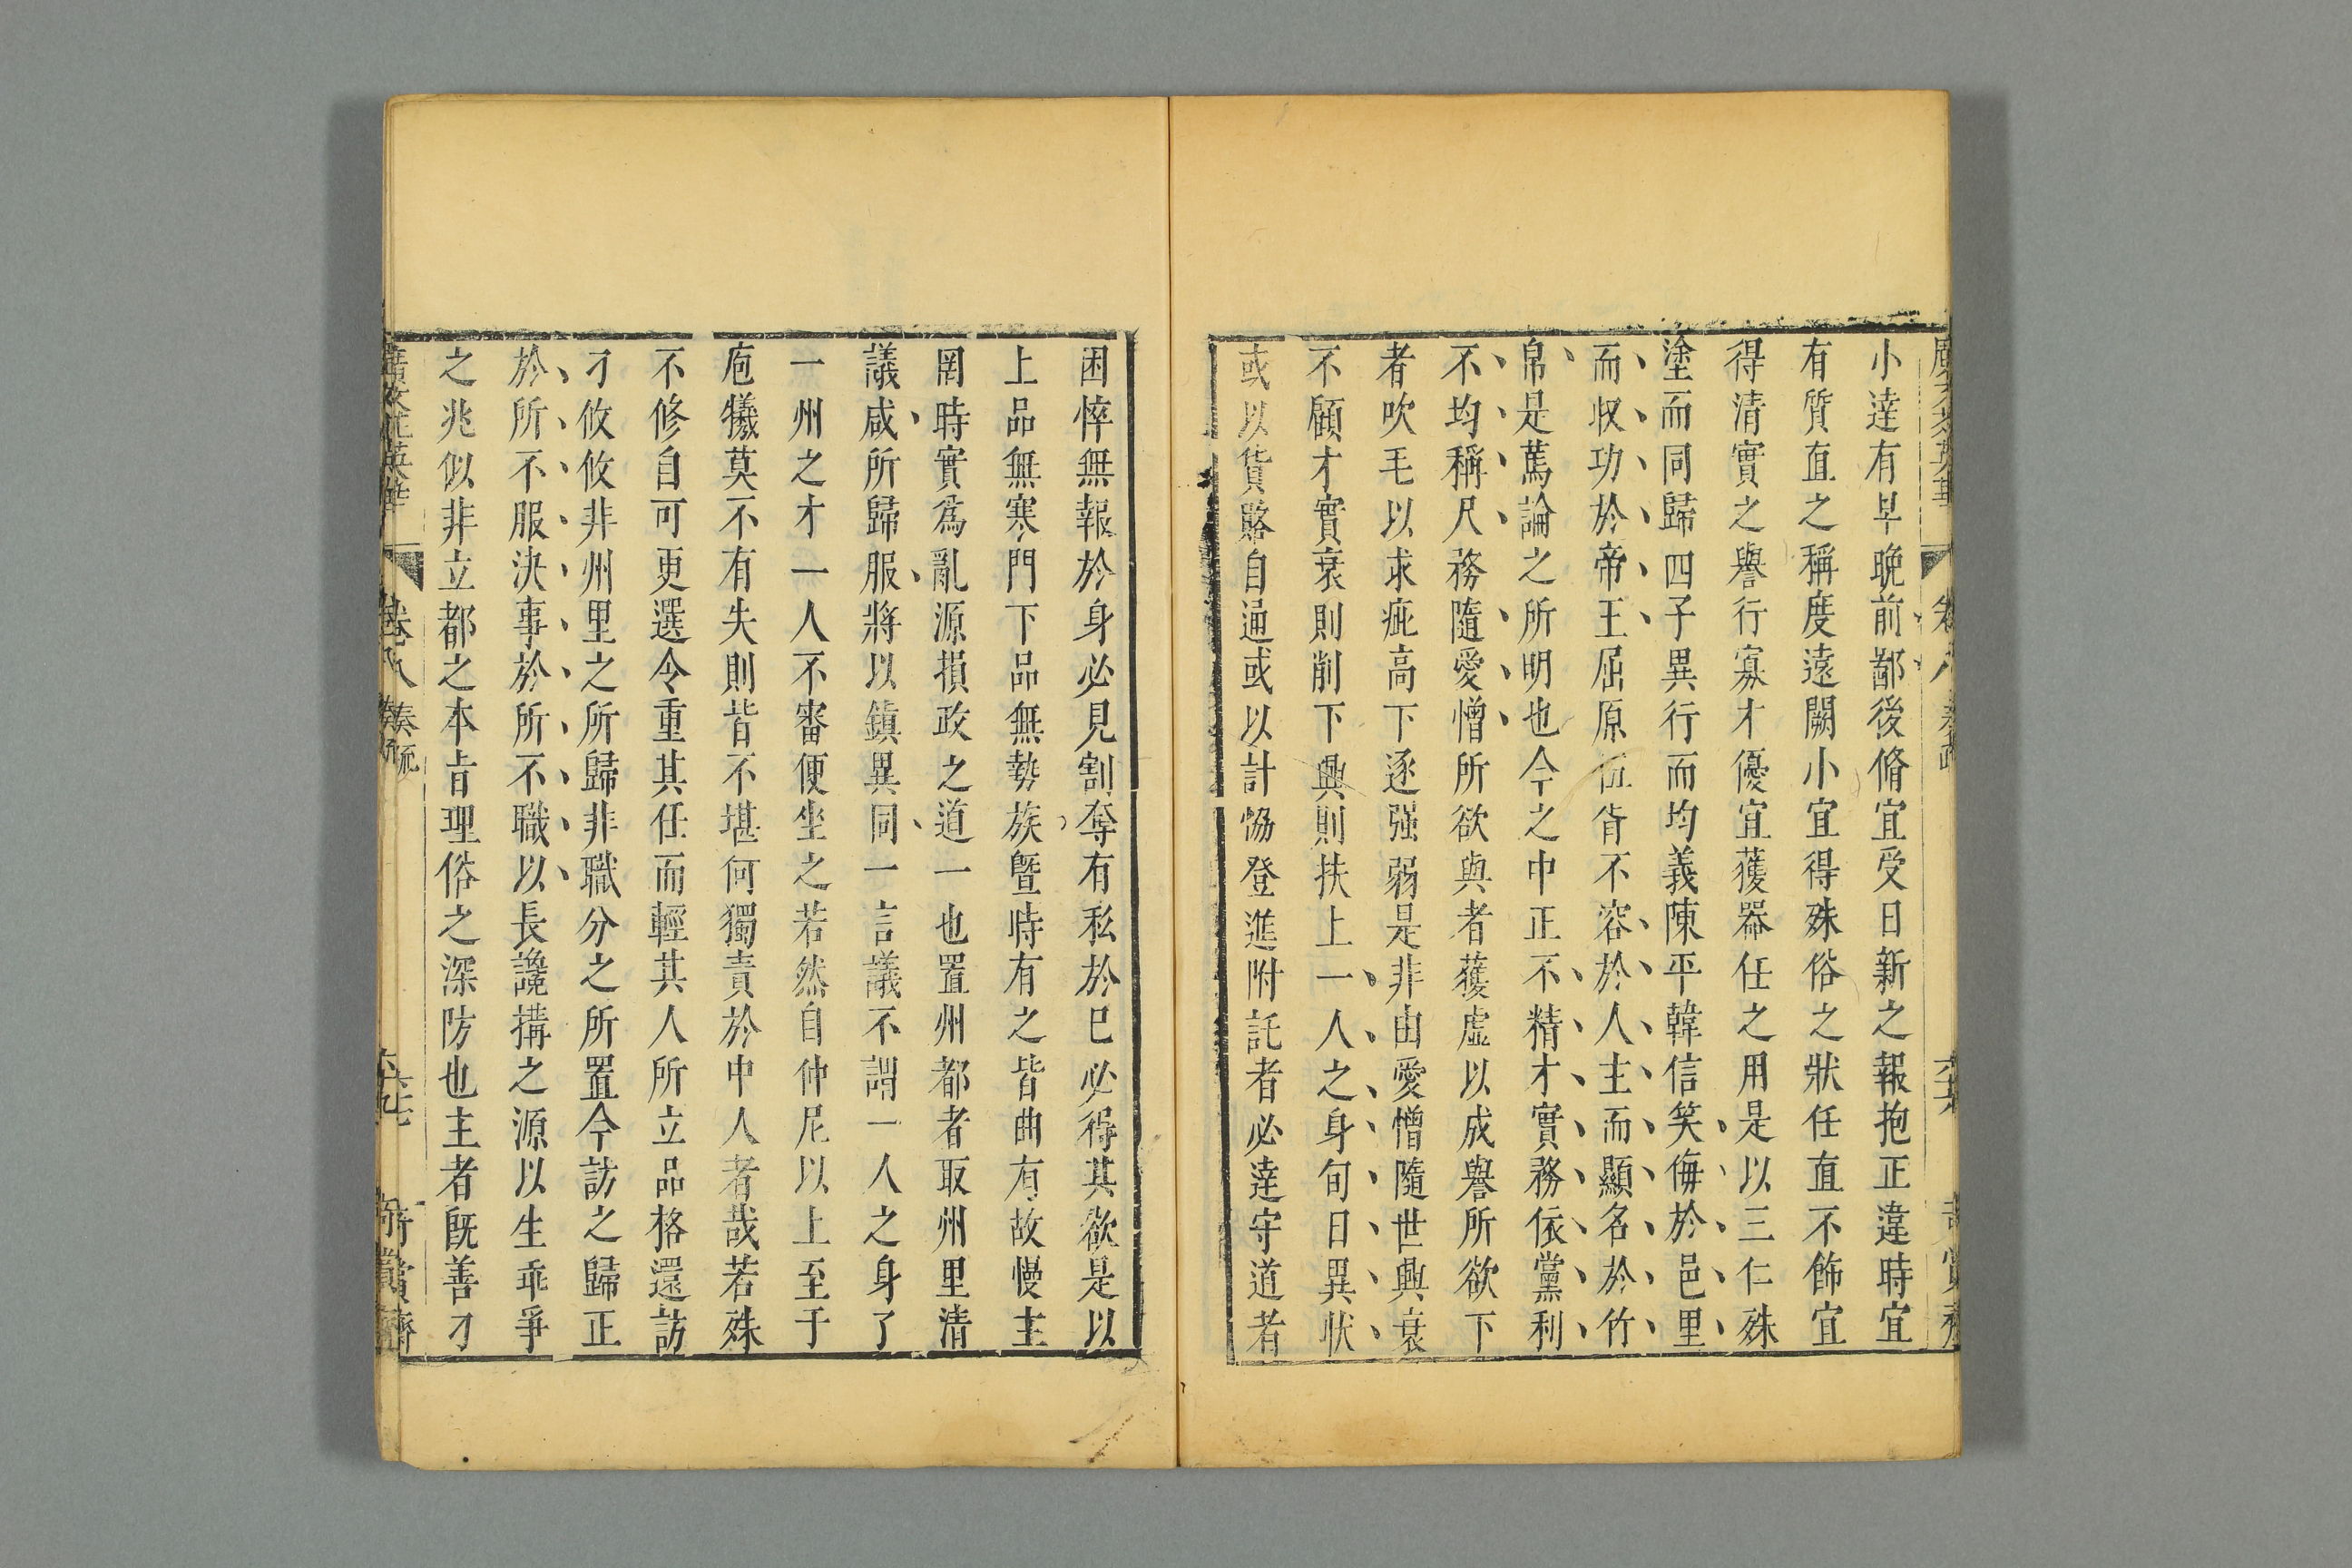 廣文苑英華 卷八 奏疏 六十六 奇賞齋
小達有早晚前鄙後脩宜受日新之報抱正違時宜
有質直之稱度遠闕小宜得殊俗之狀任直不飾宜
得清實之譽行寡才優宜獲器任之用是以三仁殊
塗而同歸四子異行而均義陳平韓信笑侮於邑里
而収功於帝王屈原伍胥不容於人主而顯名於竹
帛是蔫論之所明也今之中正不精才實務依黨利
不均稱尺務隨愛憎所欲與者獲虛以成譽所欲下
者吹毛以求疵高下逐强弱是非由愛憎隨世興衰
不顧才實衰則削下興則扶上一人之身旬日異狀
或以貨賂自通或以計恊登進附託者必達守道者
困悴無報於身必見割奪有私於已必得其欲是以
上品無寒門下品無勢族曁時有之皆曲有故慢主
罔時實爲亂源損政之道一也置州都者取州里清
議咸所歸服將以鎮異同一言議不謂一人之身了
一州之才一人不審便坐之若然自仲尼以上至于
庖犧莫不有失則皆不堪何獨責於中人者哉若殊
不修自可更選今重其任而輕其人所立品格還訪
刁攸攸非州里之所歸非職分之所置今訪之歸正
於所不服決事於所不職以長讒搆之源以生乖爭
之兆似非立都之本旨理俗之深防也主者旣善刁
廣文苑英華 卷八 奏疏 六十七 奇賞齋